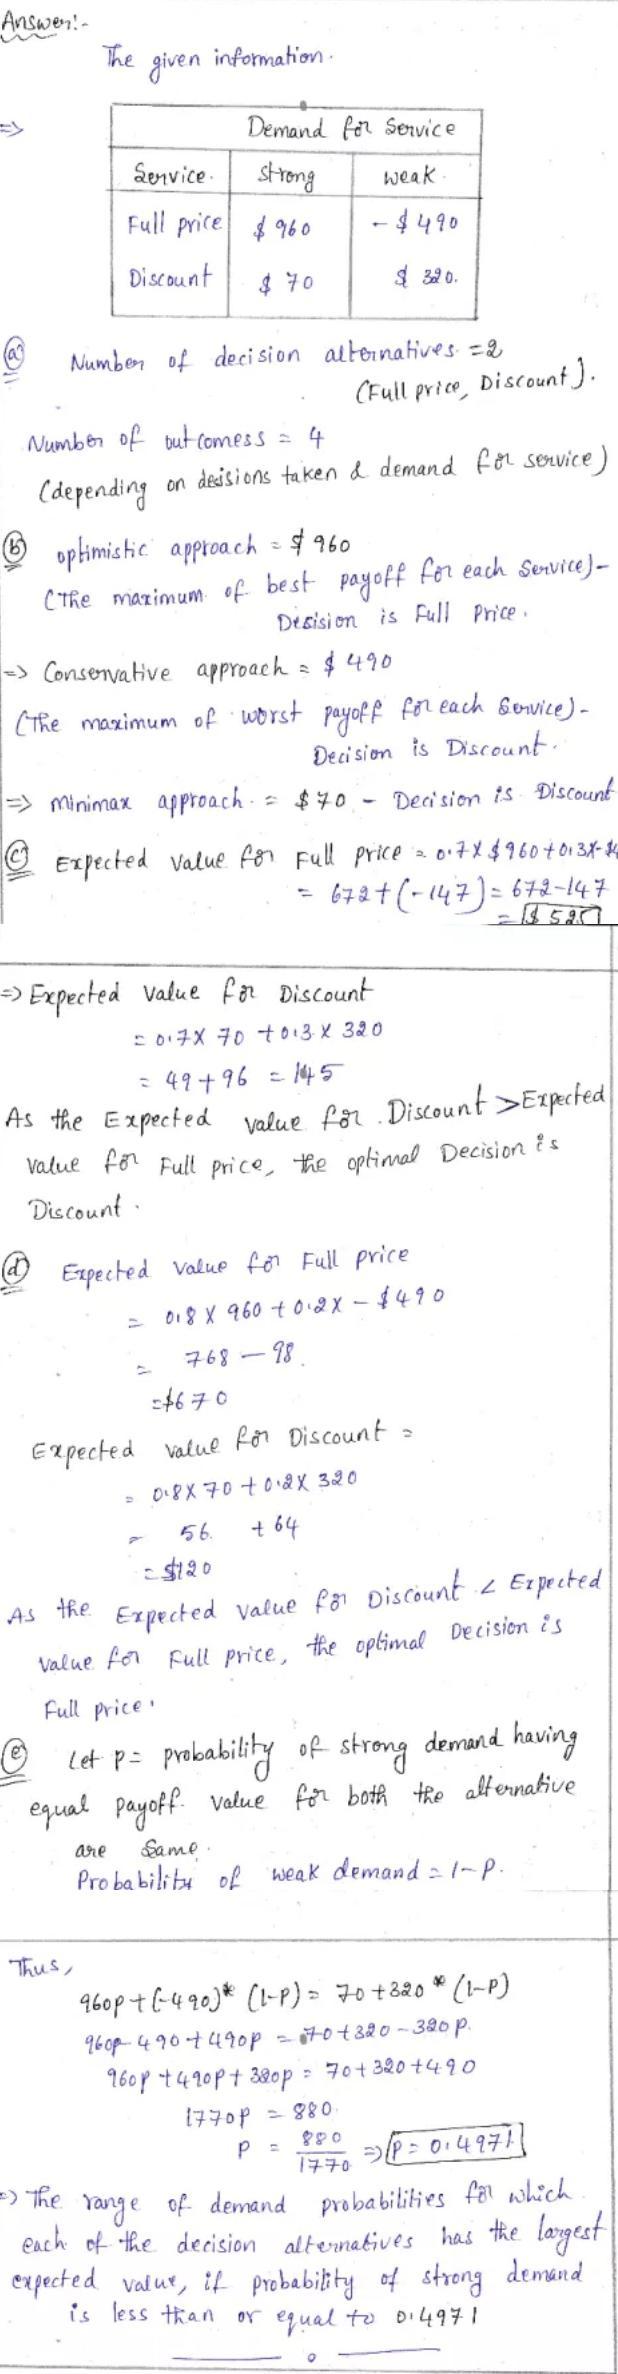 Answer:-
The given information.
=> Demand for Service
Service. strong weak.
Full price $ 960 - $ 490
Discount $ 70 $ 320.
(a) Number of decision alternatives. = 2
(Full price, Discount).
Number of outcomess = 4
(depending on desisions taken & demand for service)
(b) optimistic approach = $ 960
(The maximum of best payoff for each Service)-
Desision is Full Price.
=> Conservative approach = $ 490
(The maximum of worst payoff for each Service)-
Decision is Discount.
=> minimax approach. = $ 70 - Decision is Discount
(c) Expected Value for Full price = 0.7 X $ 960 + 0.3 X - $4
= 672 + (-147) = 672 - 147
= $ 525
=> Expected Value for Discount
= 0.7 X 70 + 0.3 X 320
= 49 + 96 = 145
As the Expected value for Discount > Expected
value for Full price, the optimal Decision is
Discount.
(d) Expected Value for Full price
= 0.8 X 960 + 0.2 X - $ 490
= 768 - 98.
= $670
Expected value for Discount =
= 0.8 X 70 + 0.2 X 320
= 56. + 64
= $120
As the Expected Value for Discount < Expected
value for Full price, the optimal Decision is
Full price.
(e) Let p = probability of strong demand having
equal payoff. value for both the alternative
are Same.
Probability of weak demand = 1-p.
Thus,
960p + (-490)* (1-p) = 70 + 320 * (1-p)
960p - 490 + 490p = 70 + 320 - 320p.
960p + 490p + 320p = 70 + 320 + 490
1770p = 880.
p = 880/1770 => p = 0.4971
=> The range of demand probabilities for which
each of the decision alternatives has the largest
expected value, if probability of strong demand
is less than or equal to 0.4971